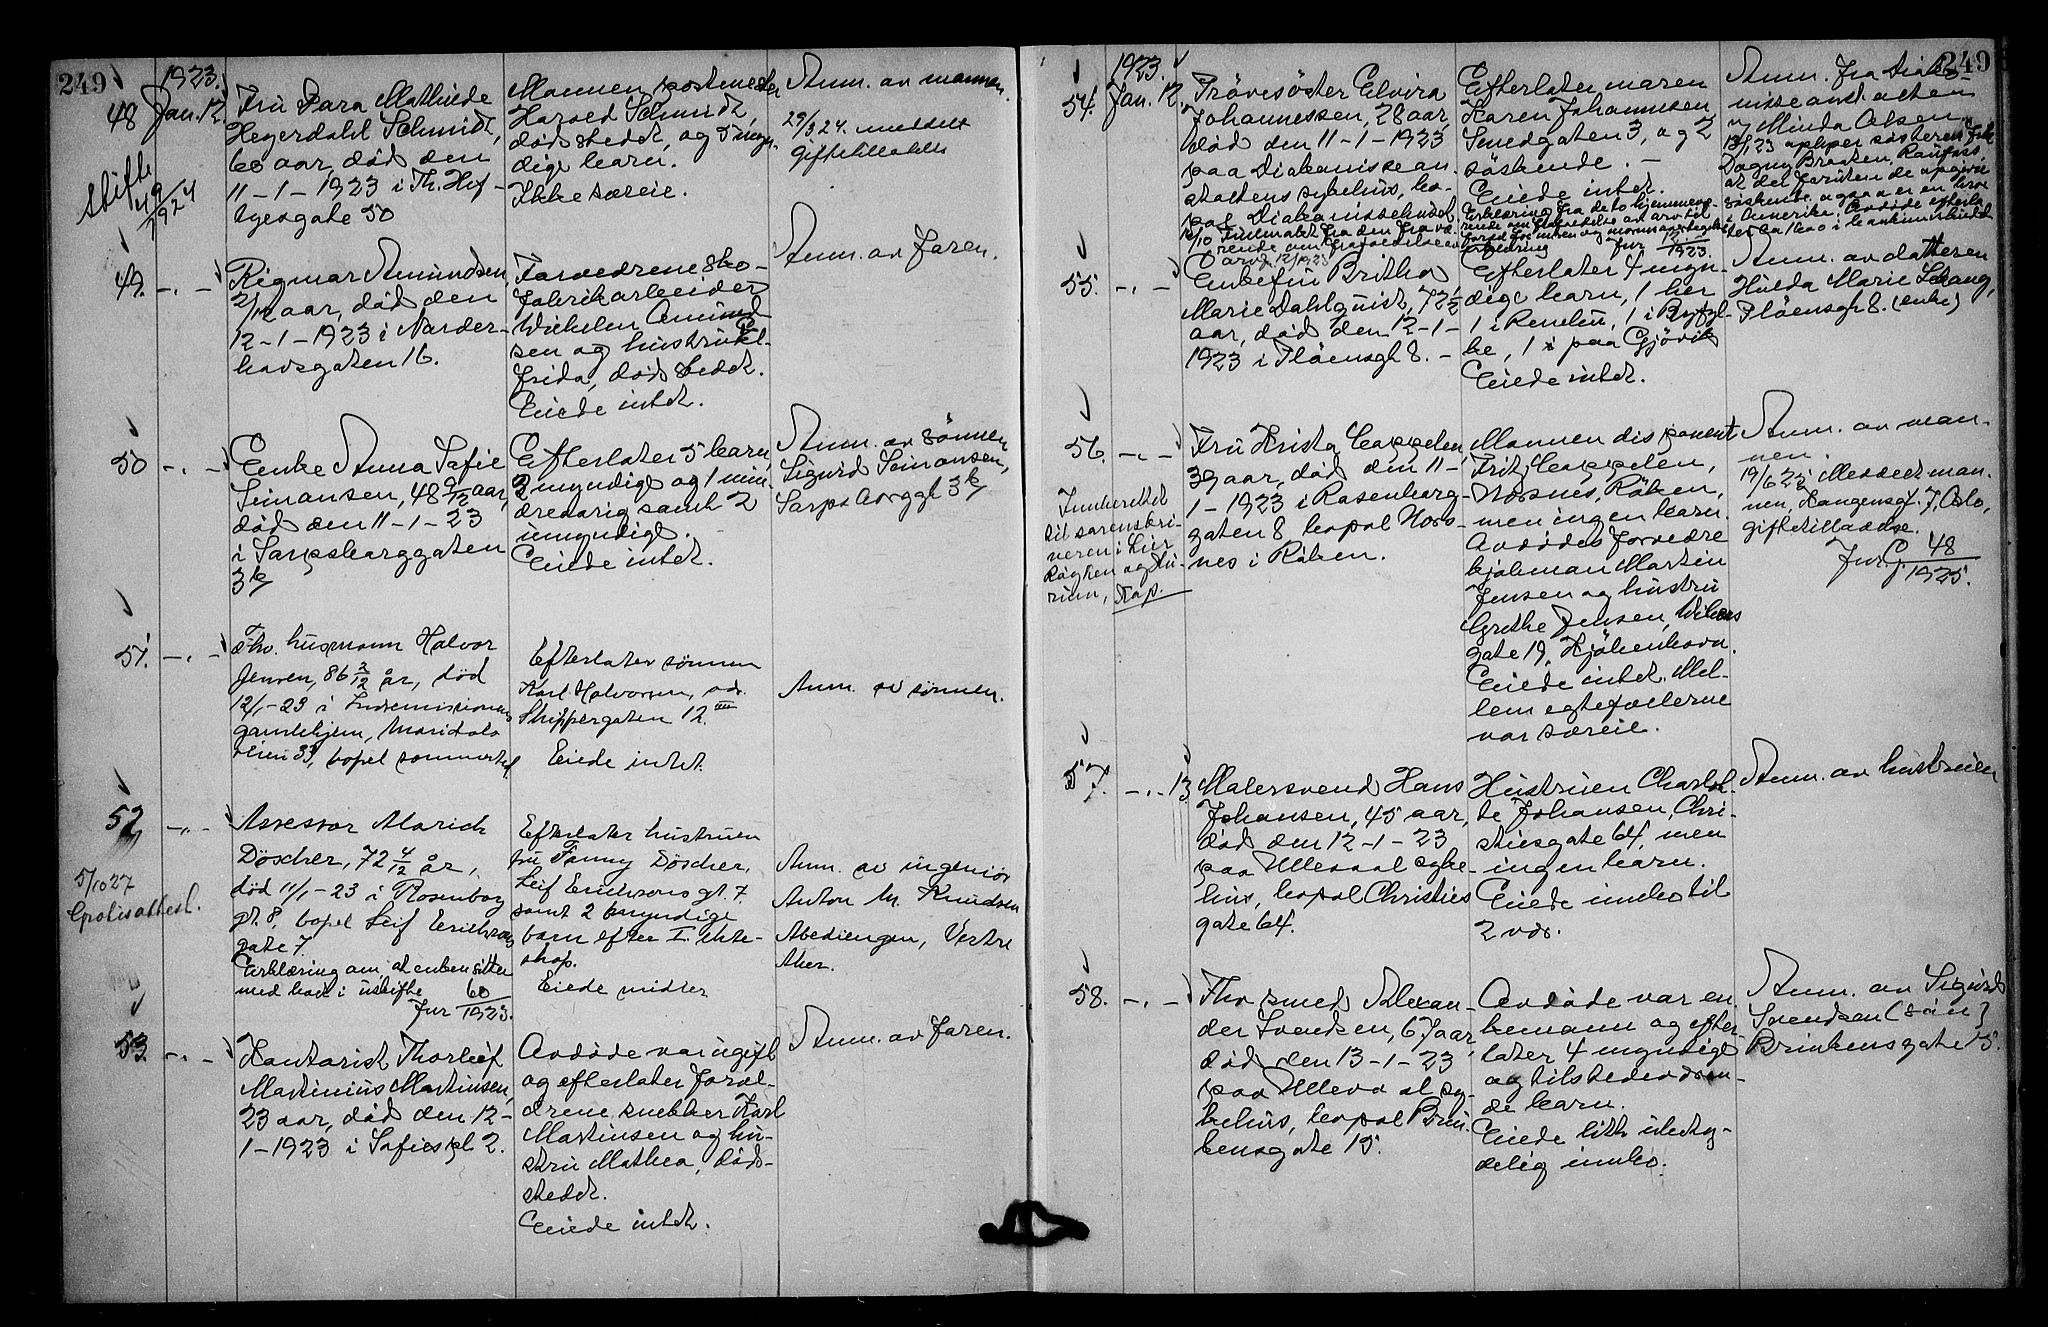 249
1923.
48 Jan. 12.
Skifte
49/1924
Fru Sara Mathilde
Heyerdahl Schmidt,
60 aar, död den
11-1-1923 i Th. Hef-
tyesgate 50
Mannen postmester
Harald Schmidt,
dödstedet, og 7 myn-
dige barn.
Ikke særeie.
Anm. av mannen.
29/3 24. meddelt
giftetilladelse
49. -"-
Rigmor Amundsen,
2/12 aar, död den
12-1-1923 i Norder-
hovsgaten 16.
Forældrene sko-
fabrikarbeider
Wilhelm Amund-
sen og hustru El-
frida, dödstedet.
Eiede intet.
Anm. av faren.
50 -"-
Enke Anna Sofie
Simonsen, 48 9/12 aar,
död den 11-1-23
i Sarpsborggaten
3b
Efterlater 5 barn,
2 myndige og 1 min-
dreaarig samt 2
umyndige.
Eiede intet.
Anm. av sönnen
Sigurd Simonsen,
Sarpsborggt 3b
51. -"-
Fhv. husmann Halvor
Jensen, 86 2/12 år, död
12/1-23 i Indremissionens
gamlehjem, Maridals
veien 33, bopel sammested
Efterlater sønnen
Karl Halvorsen, adr.
Skippergaten 12 III
Eiede intet.
Anm. av sønnen.
52 -"-
5/10 27
Gratisattest.
Assessor Alarich
Döscher, 72 4/12 år,
död 11/1-23 i Rosenborg
gt. 8, bopel Leif Erichsons
gate 7.
Erklæring om, at enken sitter
med boet i uskifte
Jnr 60/1923.
Efterlater hustruen
fru Fanny Döscher,
Leif Erichsons gt. 7.
samt 2 myndige
barn efter I. ekte-
skap.
Eiede midler
Anm. av ingeniør
Anton M. Knudsen
Abediengen, Vestre
Aker.
53. -"-
Kontorist Thorleif
Martinius Martinsen,
23 aar, död den 12-
1-1923 i Sofies pl 2.
Avdöde var ugift
og efterlater foræl-
drene snekker Karl
Martinsen og hu-
stru Mathea, död-
stedet.
Eiede intet.
Anm. av faren.
249
1923.
54. Jan. 12
Prövesöster Elvira
Johannessen, 28 aar,
död den 11-1-1923
paa Diakonissean-
staltens sykehus, bo-
pæl Diakonissehuset.
Efterlater moren
Karen Johannessen
Smedgaten 3, og 2
söskende. -
Eiede intet.
Erklæring fra de to hjemmevæ-
Jnr 12/1923.
Anm. fra Diako-
nisseanstalten
v/ Minda Olsen
13/1 23 opl. per söster frk
Dagny Braaten, Raufoss
at det foruten de opgivne
söskende ogsaa er en bror
i Amerika. Avdöde efterla-
55. -"-
Enkefru Britha
Marie Dahlquist, 72 1/2
aar, död den 12-1-
1923 i Plöensgt 8. -
Efterlater 4 myn-
dige barn, 1 her
1 i Rendlen, 1 i Rygge-
be, 1 paa Gjövik
Eiede intet.
Anm. av datteren
Hulda Marie Schang,
Plöensgt 8. (enke)
56. -"-
Innberettet
til sorenskri-
veren i Lier
Röyken og Hu-
rum, Kap.
Fru Krista Cappelen,
39 aar, död den 11-
1-1923 i Rosenborg-
gaten 8 bopæl Nors-
nes i Röken.
Mannen disponent
Fritz Cappelen,
Norsnes, Röken,
men ingen barn.
Avdödes forældre
kjöbman Martin
Jensen og hustru
Grethe Jensen, Wibers
gate 19, Kjöbenhavn.
Eiede intet. Mel-
lem egtefællerne
var særeie.
Anm. av man-
nen.
19/6 25 Meddelt man-
nen, Kongensgt. 7, Oslo,
giftetilladelse.
Jnr 48/1925.
57. -"- 13
Malersvend Hans
Johansen, 45 aar,
död den 12-1-23
paa Ullevaal syke-
hus, bopæl Christies
gate 64.
Hustruen Charlot-
te Johansen, Chri-
stiesgate 64, men
ingen barn.
Eiede innbo til
2 vær.
Anm. av hustruen
58. -"-
Fhv smed Alexan-
der Svendsen, 67 aar,
död den 13-1-23
paa Ullevaal sy-
kehus, bopæl Brin-
kensgate 15.
Avdöde var en-
kemann og efter-
later 4 myndige
og tilstedeværen-
de barn.
Eiede litt ubety-
delig innbo.
Anm. av Sigurd
Svendsen (sön)
Brinkensgate 15.